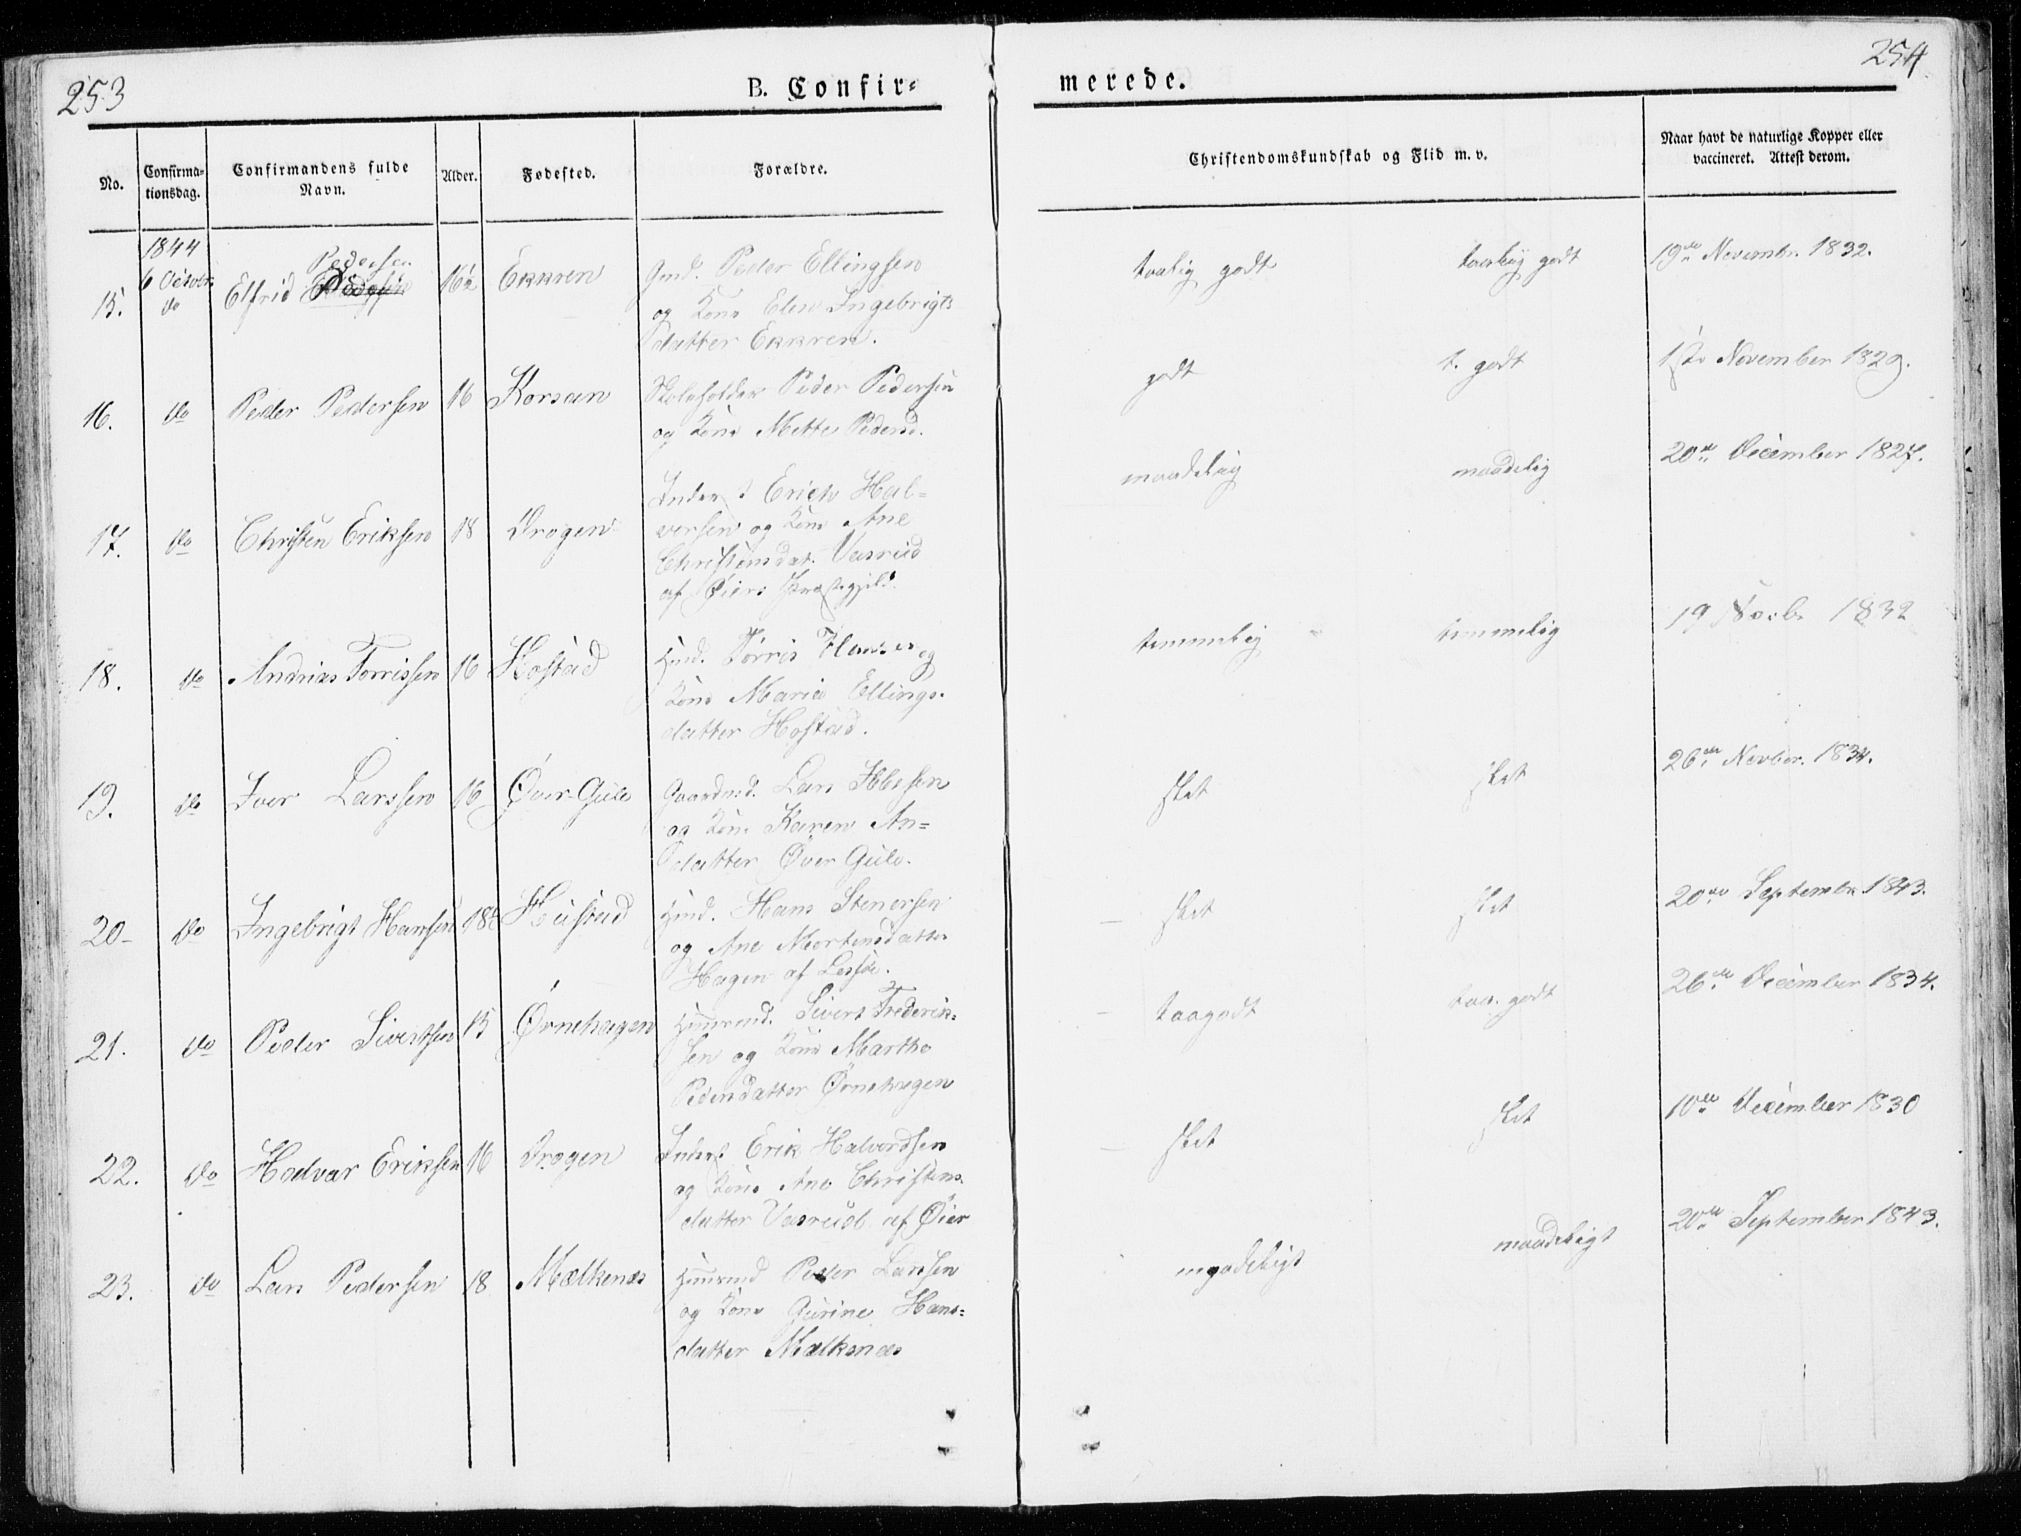 253
B. Confir=
merede.
254.
No.
Confirma-
tionsdag.
Confirmandens fulde
Navn.
Alder.
Fødested.
Forældre.
Christendomskundskab og Flid m. v.
Naar havt de naturlige Kopper eller
vaccineret. Attest derom.
1844
6 October
15. do Elfrid Pedersen 16½ Ekkren
Gmd. Peder Ellingsen
og Kone Elen Ingebrigts
datter Ekkren.
taalig godt
taalig godt
19de Novembr. 1832.
16. do Peder Pedersen 16 Korsan
Skoleholder Peder Pedersen
og Kone Mette Pedersd.
godt
t. godt
1ste November 1829.
17. do Christen Eriksen 18 Drogen
Inderst Erich Hal=
versen og Kone Ane
Christensdat. Vasrud
af Øiers Præstegjel.
maadelig
maadelig
20de December 1827.
18. do Andrias Torrissen 16 Hostad
Huusmd. Torris Hansen og
Kone Maria Ellings-
datter Hostad.
temmelig
temmelig
19 Novbr 1832
19. do Iver Larssen 16 Øver-Gule
Gaardmd. Lars Ibbsen
og Kone Karen An=
datter Øver Gule.
slet
slet
26de Novber. 1834.
20- do Ingebrigt Hansen 18 Hustad
Hmd. Hans Stenersen
og Ane Mortensdatter
Hagen af Lessøe.
slet
slet
20de Septembr 1843.
21. do Peder Sivertsen 15 Ørnehagen
Huusmd. Sivert Frederik-
sen og Kone Martha
Pedersdatter Ørnehagen
taagodt
taa. godt
26de December 1834.
22. do Halvar Eriksen 16 Drogen
Inderst Erik Halvordsen
og Kone Ane Christens
datter Vasrud af Øier
slet
slet
10de December 1830
23. do Lars Pedersen 18 Mælkenes
Huusmd Peder Larssen
og Kone Gurine Hans=
datter Mælkenæs
maadeligt
maadeligt
20de September 1843.